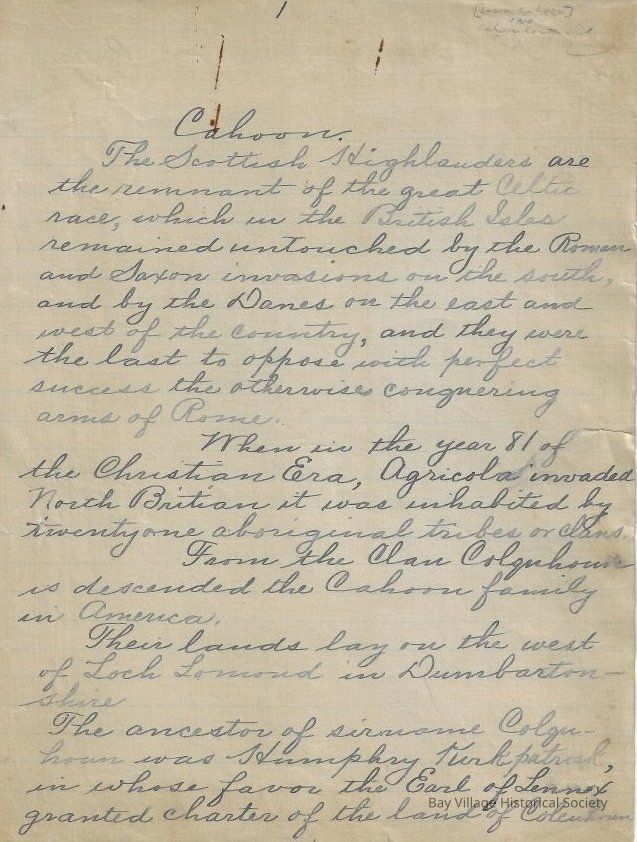 1
Cahoon.
The Scottish Highlanders are
the remnant of the great Celtic
race, which in the British Isles
remained untouched by the Roman
and Saxon invasions on the south,
and by the Danes on the east and
west of the country, and they were
the last to oppose with perfect
success the otherwise conquering
arms of Rome.
When in the year 81 of
the Christian Era, Agricola invaded
North Britian it was inhabited by
twentyone aboriginal tribes or clans.
From the Clan Colquhoun
is descended the Cahoon family
in America.
Their lands lay on the west
of Loch Lomond in Dumbarton-
shire
The ancestor of sirname Colqu-
houn was Humphry Kirkpatrick,
in whose favor the Earl of Lennox
Bay Village Historical Society
granted charter of the land of Colquhoun